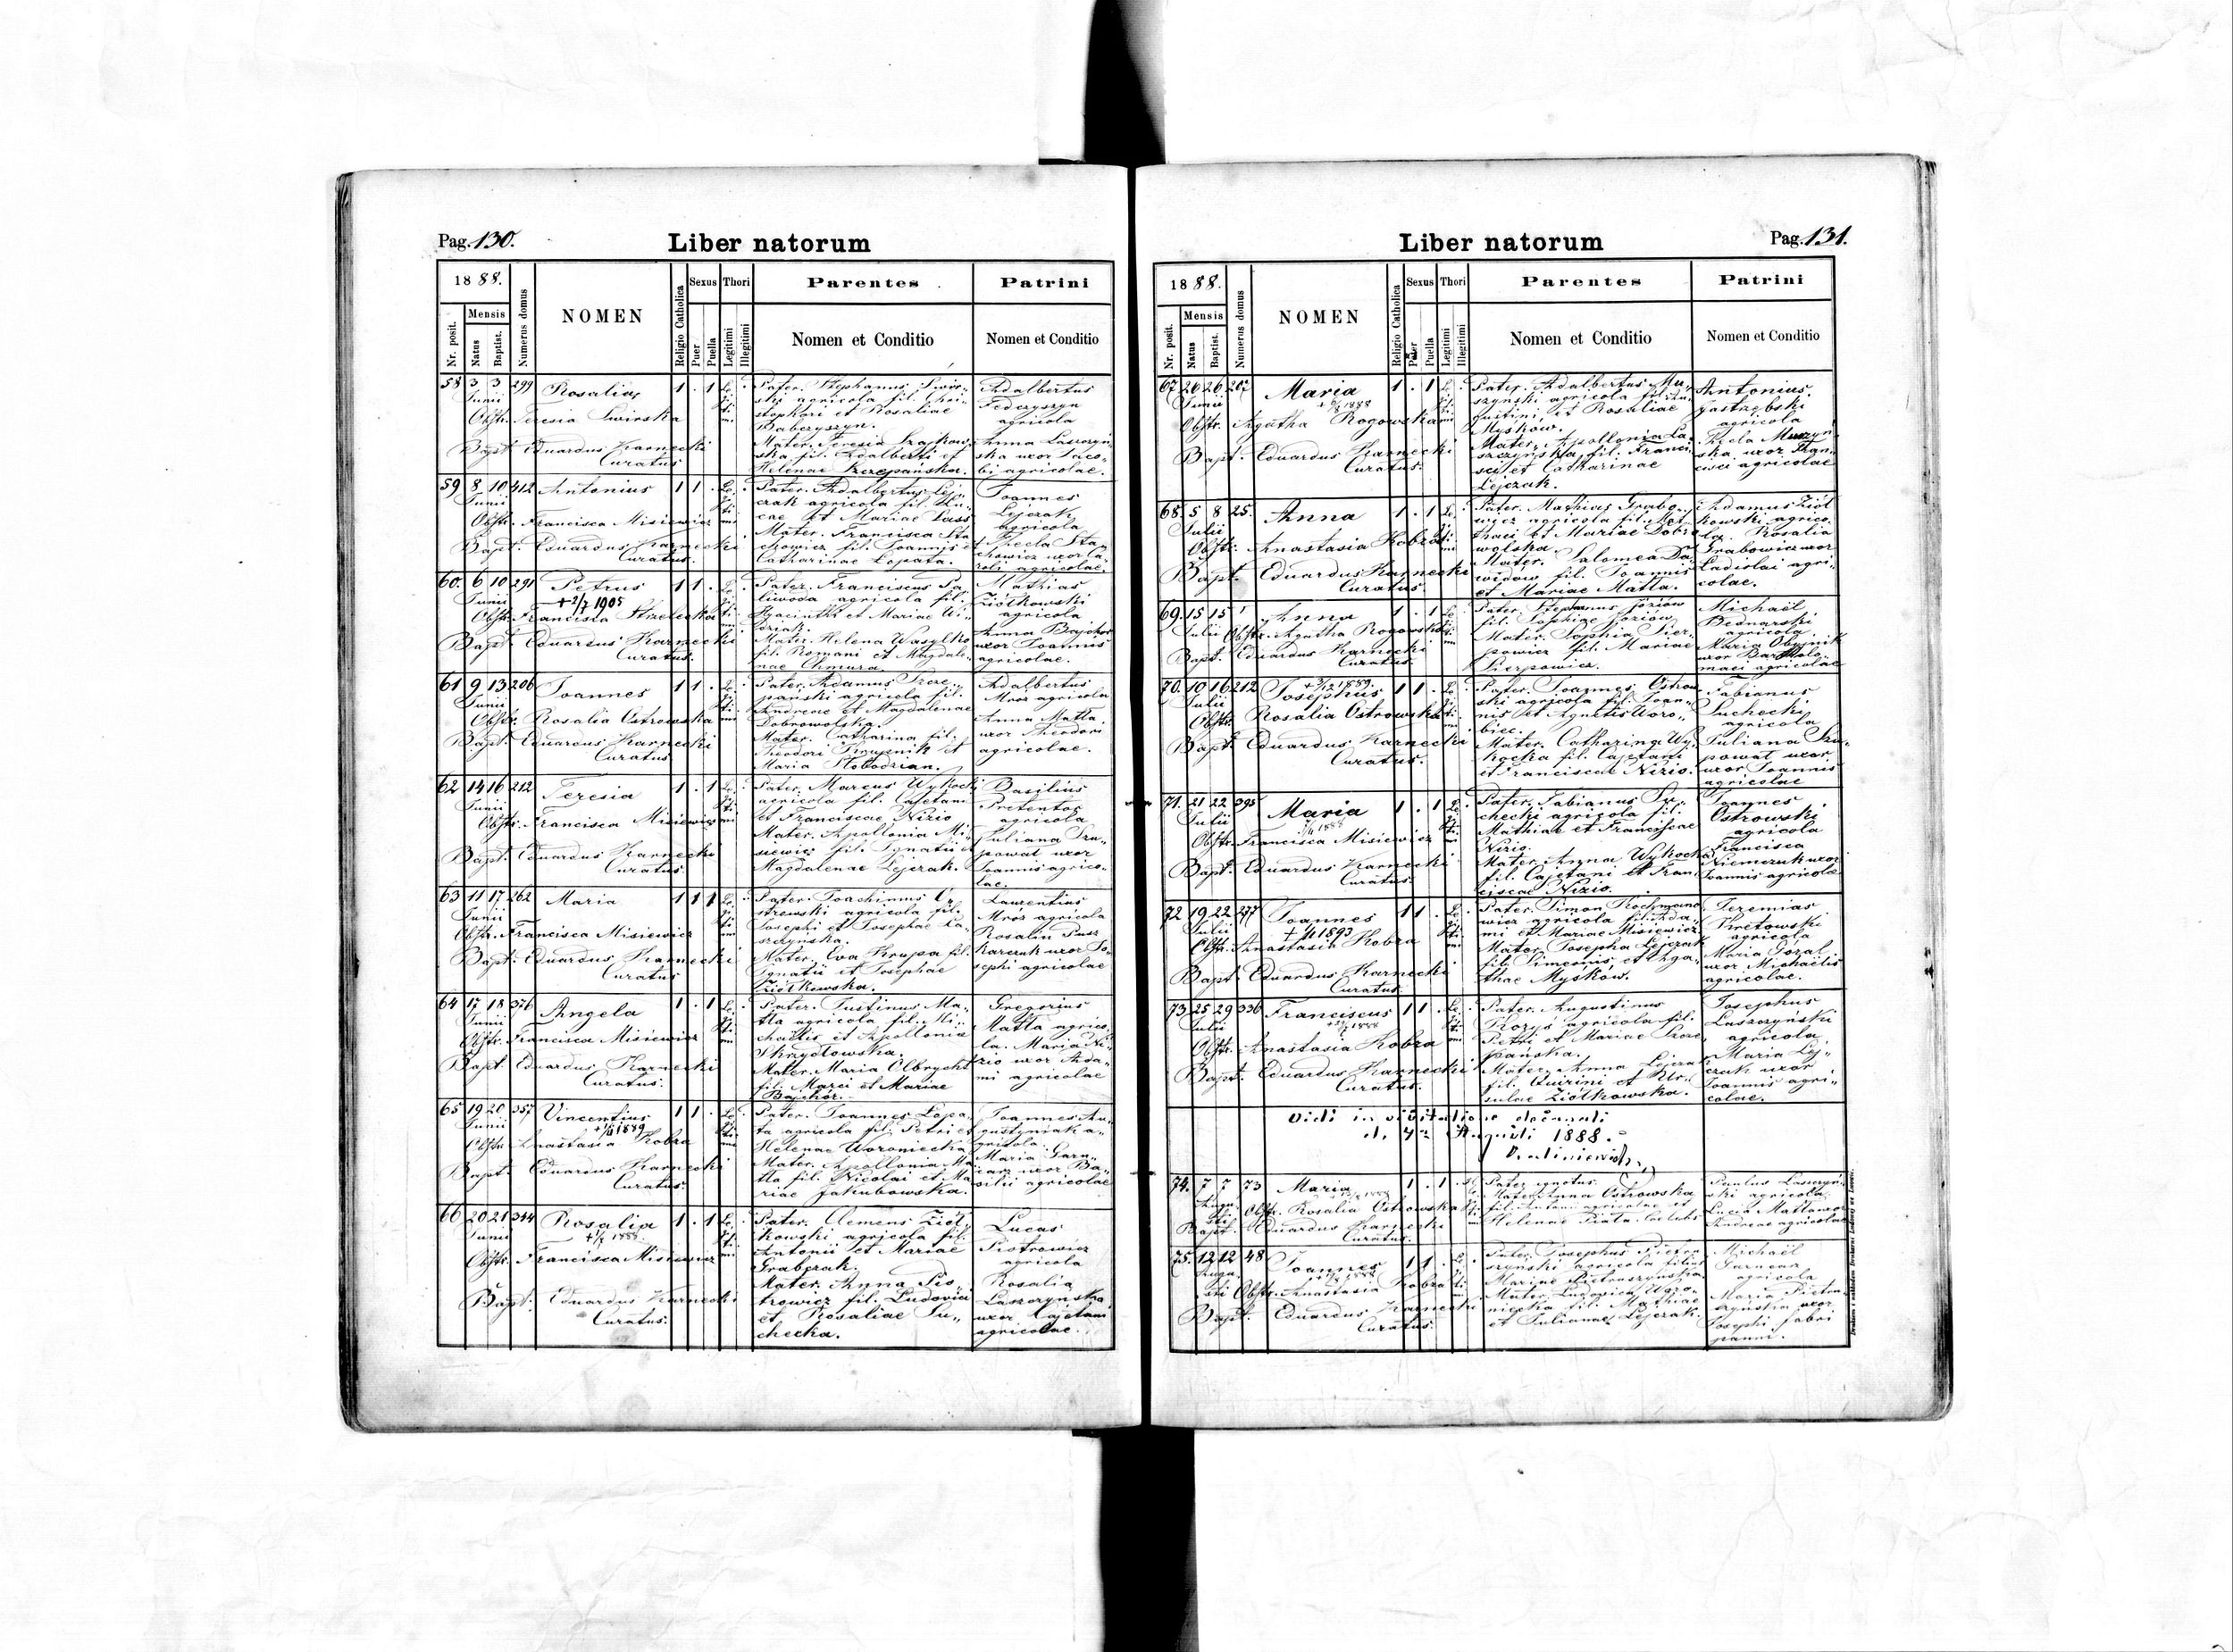 Pag. 130.
Liber natorum
1888.
Nr. posit.
Mensis
Natus
Baptist.
Numerus domus
NOMEN
Religio Catholica
Sexus
Puer
Puella
Thori
Legitimi
Illegitimi
Parentes
Nomen et Conditio
Patrini
Nomen et Conditio
58 3 3 299 Rosalia 1 . 1
Junii
Obstr. Teresia Swirska
Bapt. Eduardus Karnecki
Curatus
Pater. Stephanus Swir-
ski agricola fil. Chri-
stophori et Rosaliae
Baberyszyn.
Mater. Teresia Szajkow-
ska fil. Adalberti et
Helenae Szczepańska.
Adalbertus
Federyszyn
agricola
Anna Laszczyń-
ska uxor Jaco-
bi agricolae.
59 8 10 412 Antonius 1 1 .
Junii
Obstr. Francisca Misiewicz
Bapt. Eduardus Karnecki
Curatus.
Pater. Adalbertus Lej-
czak agricola fil. Lu-
cae et Mariae Lass
Mater. Francisca Sta-
chowicz fil. Joannis et
Catharinae Łopata.
Joannes
Lejczak
agricola
Thecla Sta-
chowicz uxor Ca-
roli agricolae.
60. 6 10 291 Petrus 1 1 .
Junii + 2/7 1905
Obstr. Francisca Strzelecka
Bapt. Eduardus Karnecki
Curatus.
Pater. Franciscus Pa-
liwoda agricola fil.
Hyacinthi et Mariae
Mater. Helena Wasylko
fil. Romani et Magdale-
nae Chmura.
Mathias
Ziółkowski
agricola
Anna Bajchor
uxor Joannis
agricolae.
61 9 13 206 Joannes 1 1 .
Junii
Obstr. Rosalia Ostrowska
Bapt. Eduardus Karnecki
Curatus
Pater. Adamus Szcze-
pański agricola fil.
Andreae et Magdalenae
Dobrowolska.
Mater. Catharina fil.
Theodori Krupnik et
Maria Słobodzian.
Adalbertus
Mróz agricola
Anna Matla
uxor Theodori
agricolae.
62 14 16 212 Teresia 1 . 1
Junii
Obstr. Francisca Misiewicz
Bapt. Eduardus Karnecki
Curatus.
Pater. Marcus Wykocki
agricola fil. Cajetani
et Franciscae Nizio
Mater. Apollonia Mi-
siewicz fil. Ignatii et
Magdalenae Lejczak.
Basilius
Pretentos
agricola
Juliana Szu-
powat uxor
Joannis agrico-
lae.
63 11 17 262 Maria 1 1 1
Junii
Obstr. Francisca Misiewicz
Bapt. Eduardus Karnecki
Curatus
Pater. Joachimus O-
strowski agricola fil.
Josephi et Josephae La-
szczyńska.
Mater. Eva Krupa fil.
Ignatii et Josephae
Ziółkowska.
Laurentius
Mróz agricola
Rosalia Pusz
Karczuk uxor Jo-
sephi agricolae
64 17 18 376 Angela 1 . 1
Junii
Obstr. Francisca Misiewicz
Bapt. Eduardus Karnecki
Curatus.
Pater. Justinus Ma-
tla agricola fil. Mi-
chaelis et Apollonia
Skrzydłowska.
Mater. Maria Olbrycht
fil. Marci et Mariae
Bajchór.
Gregorius
Matla agrico-
la. Maria Ni-
zio uxor Ada-
mi agricolae
65 19 20 357 Vincentius 1 1 .
Junii 1889
Obstr. Anastasia Kobra
Bapt. Eduardus Karnecki
Curatus.
Pater. Joannes Łopa-
ta agricola fil. Petri et
Helenae Woroniecka
Mater. Apollonia Ma-
tla fil. Nicolai et Ma-
riae Jakubowska.
Joannes Au-
gustyniak a-
gricola.
Maria Garn-
carz uxor Ba-
silii agricolae
66 20 21 344 Rosalia 1 . 1
Junii 1888.
Obstr. Francisca Misiewicz
Bapt. Eduardus Karnecki
Curatus.
Pater. Clemens Ziół-
kowski agricola fil.
Antonii et Mariae
Grabczak.
Mater. Anna Pio-
trowicz fil. Ludovici
et Rosaliae Su-
checka.
Lucas
Piotrowicz
agricola
Rosalia
Laszczyńska
uxor Cajetani
agricolae.
Pag. 131.
Liber natorum
1888.
Nr. posit.
Mensis
Natus
Baptist.
Numerus domus
NOMEN
Religio Catholica
Sexus
Puer
Puella
Thori
Legitimi
Illegitimi
Parentes
Nomen et Conditio
Patrini
Nomen et Conditio
67 26 26 Maria 1 . 1
Junii 1888
Obstr. Agatha Rogowska
Bapt. Eduardus Karnecki
Curatus.
Pater. Adalbertus Mu-
szyński agricola fil. Au-
gustini et Rosaliae
Myśkow.
Mater. Apollonia La-
szczyńska fil. Franci-
sci et Catharinae
Lejczak.
Antonius
Jastrzębski
agricola
Thecla Muszyń-
ska uxor Fran-
cisci agricolae
68. 5 8 25. Anna 1 . 1
Julii
Obstr. Anastasia Kobra
Bapt. Eduardus Karnecki
Curatus.
Pater. Mathias Grabo-
wicz agricola fil. Mat-
thaei et Mariae Dobro-
wolska
Mater. Salomea Da-
widów fil. Joannis
et Mariae Matla.
Adamus Ziół-
kowski agrico-
la. Rosalia
Grabowicz uxor
Ladislai agri-
colae.
69. 15 15 Anna 1 . 1
Julii Obstr. Agatha Rogowska
Bapt. Eduardus Karnecki
Curatus.
Pater. Stephanus Józiów
fil. Sophiae Józiów
Mater. Sophia Sier-
powicz fil. Mariae
Sierpowicz.
Michaël
Bednarski
agricola.
Maria Obojnik
uxor Bartholo-
maei agricolae
70. 10 16 212 Josephus 1 1 .
Julii 1889.
Obstr. Rosalia Ostrowska
Bapt. Eduardus Karnecki
Curatus.
Pater. Joannes Ostrow-
ski agricola fil. Joan-
nis et Agnetis Woro-
biec.
Mater. Catharina Wy-
kocka fil. Cajetani
et Franciscae Nizio.
Fabianus
Suchecki
agricola
Juliana Szu-
powat uxor
uxor Joannis
agricolae
71. 21 22 395 Maria 1 . 1
Julii 1888
Obstr. Francisca Misiewicz
Bapt. Eduardus Karnecki
Curatus.
Pater. Fabianus Su-
checki agricola fil.
Mathiae et Franciscae
Nizio.
Mater. Anna Wykocka
fil. Cajetani et Fran-
ciscae Nizio.
Joannes
Ostrowski
agricola
Francisca
Niemczuk uxor
Joannis agricolae
72 19 22 277 Joannes 1 1 .
Julii 1893
Obstr. Anastasia Kobra
Bapt. Eduardus Karnecki
Curatus.
Pater. Simon Kochmano-
wicz agricola fil. Ada-
mi et Mariae Misiewicz
Mater. Josepha Lejczak
fil. Simeonis et Aga-
thae Myśków.
Jeremias
Kretowski
agricola
Maria Gózał
uxor Michaëlis
agricolae.
73. 25 29 336 Franciscus 1 1 .
Julii 1888
Obstr. Anastasia Kobra
Bapt. Eduardus Karnecki
Curatus.
Pater. Augustinus
Kozys agricola fil.
Petri et Mariae Szcze-
pańska.
Mater. Anna Lejczak
fil. Quirini et Ur-
sulae Ziółkowska.
Josephus
Laszczyński
agricola
Maria Lej-
czak uxor
Joannis agri-
colae.
Vidi in visitatione decanali
d. Augusti 1888.
74. 7 7 73 Maria 1 . 1
Augu-
sti Obstr. Rosalia Ostrowska
Bapt. Eduardus Karnecki
Curatus.
Pater ignotus.
Mater. Anna Ostrowska
fil. Antoni agricolae et
Helenae
Paulus Laszczyń-
ski agricola.
Lucia Matla uxor
Andreae agricolae
75. 12 12 48 Joannes 1 1 .
Augu-
sti Obstr. Anastasia Kobra
Bapt. Eduardus Karnecki
Curatus.
Pater. Josephus Pietru-
szyński agricola filius
Mariae Pietruszyńska
Mater. Ludovica Woro-
niecka fil. Mathiae
et Julianae Lejczak.
Michaël
Garncarz
agricola
Maria Pietru-
szyńska uxor
Josephi fabri